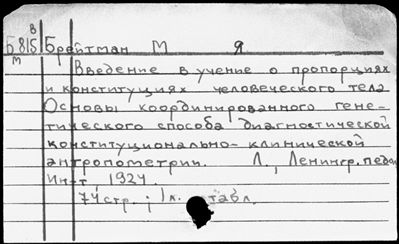 В
Б 815 Брейтман М Я
М
Введение в учение о пропорциях
и конституциях человеческого тела
Основы координированного гене-
тического способа диагностической
конституционально-клинической
антропометрии. Л., Ленингр. педол.
Ин-т 1924.
74 стр.; 1 л. табл.